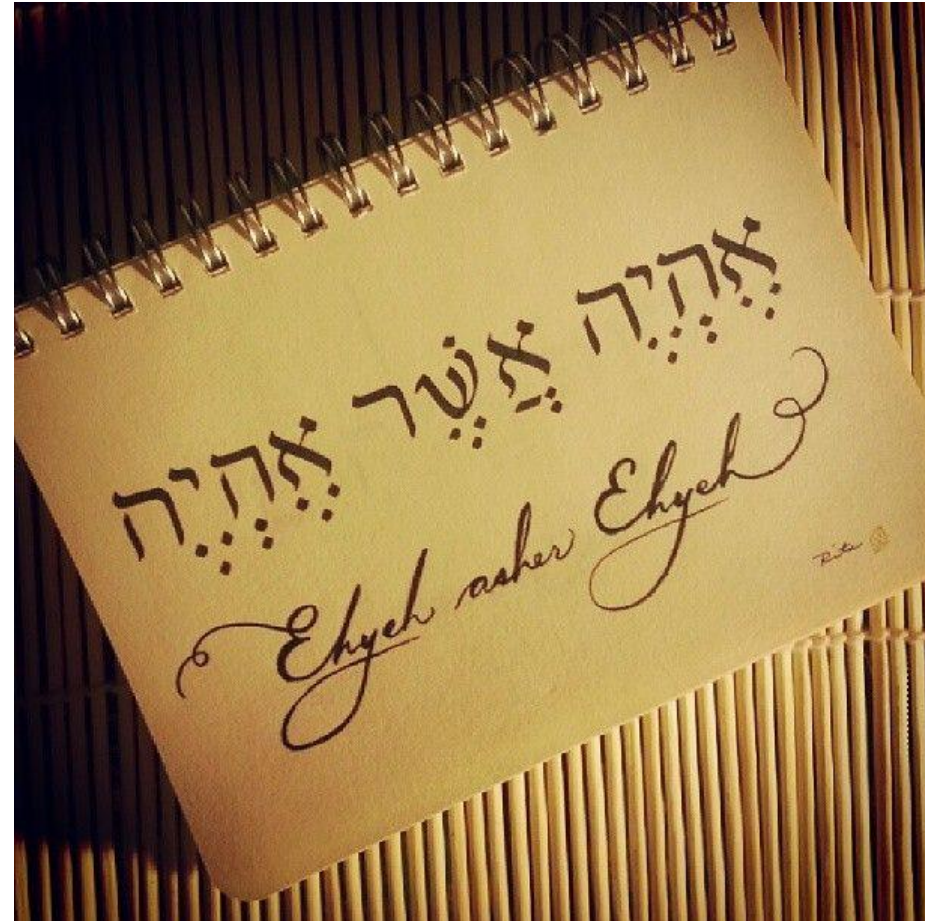 אֶהְיֶה אֲשֶׁר אֶהְיֶה
Ehyeh asher Ehyeh
Rita